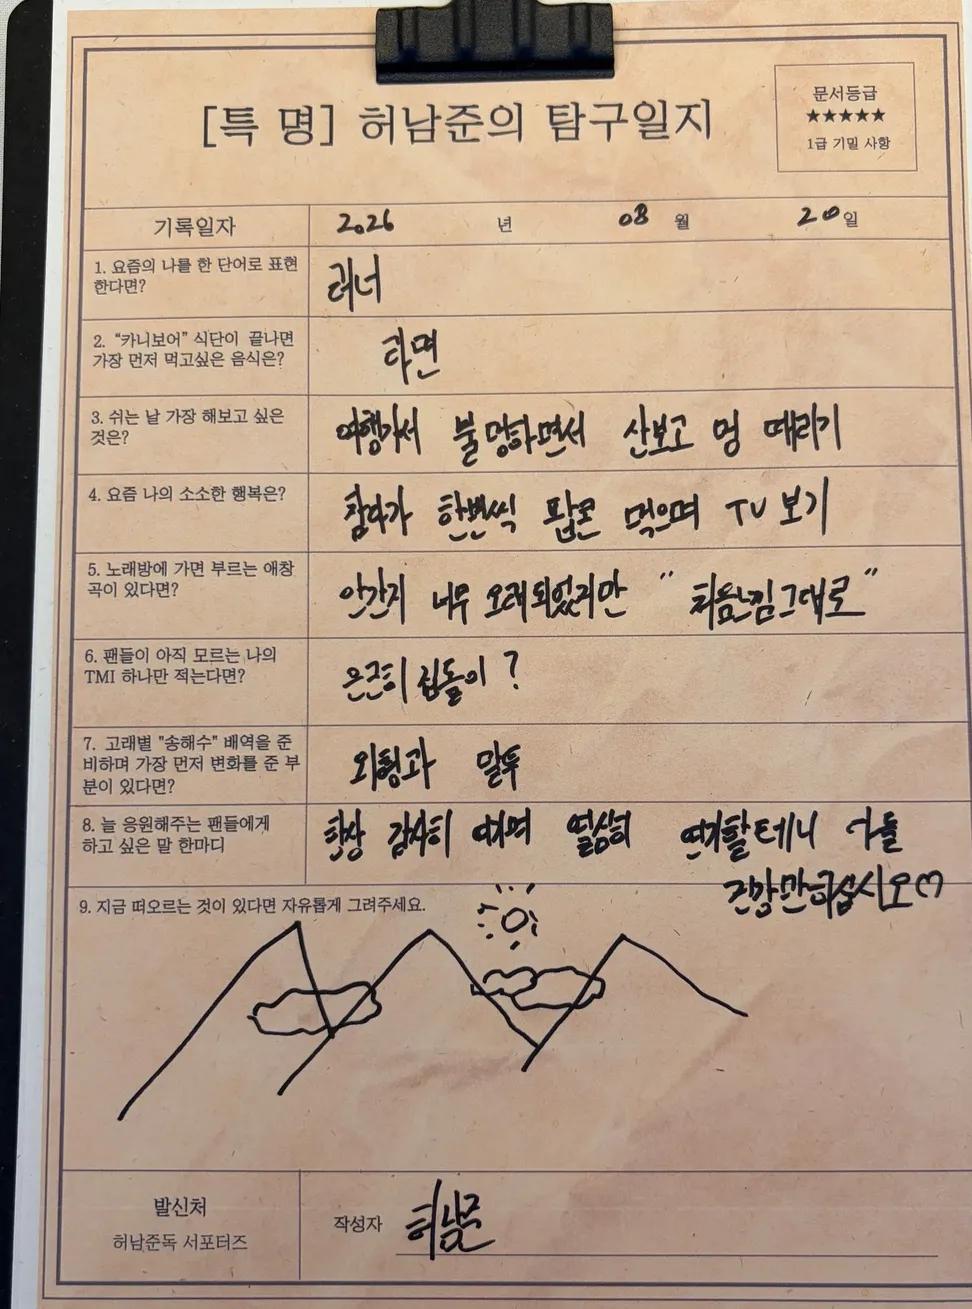 [특 명] 허남준의 탐구일지
문서등급
★★★★★
1급 기밀 사항
기록일자
2026 년 08 월 20 일
1. 요즘의 나를 한 단어로 표현
한다면?
러너
2. "카니보어" 식단이 끝나면
가장 먼저 먹고싶은 음식은?
라면
3. 쉬는 날 가장 해보고 싶은
것은?
여행가서 불멍하면서 산보고 멍 때리기
4. 요즘 나의 소소한 행복은?
참다가 한번씩 팝콘 먹으며 TV 보기
5. 노래방에 가면 부르는 애창
곡이 있다면?
안간지 너무 오래되었지만 "처음느낌그대로"
6. 팬들이 아직 모르는 나의
TMI 하나만 적는다면?
은근히 집돌이?
7. 고래별 "송해수" 배역을 준
비하며 가장 먼저 변화를 준 부
분이 있다면?
외형과 말투
8. 늘 응원해주는 팬들에게
하고 싶은 말 한마디
항상 감사히 여기며 열심히 연기할테니 다들
건강만하십시오♡
9. 지금 떠오르는 것이 있다면 자유롭게 그려주세요.
발신처
허남준독 서포터즈
작성자 허남준